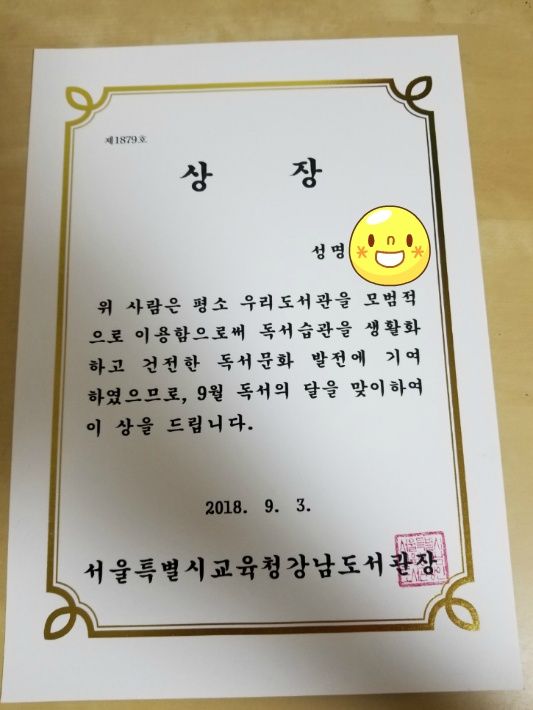 제1879호
상 장
성명
위 사람은 평소 우리도서관을 모범적
으로 이용함으로써 독서습관을 생활화
하고 건전한 독서문화 발전에 기여
하였으므로, 9월 독서의 달을 맞이하여
이 상을 드립니다.
2018. 9. 3.
서울특별시교육청강남도서관장